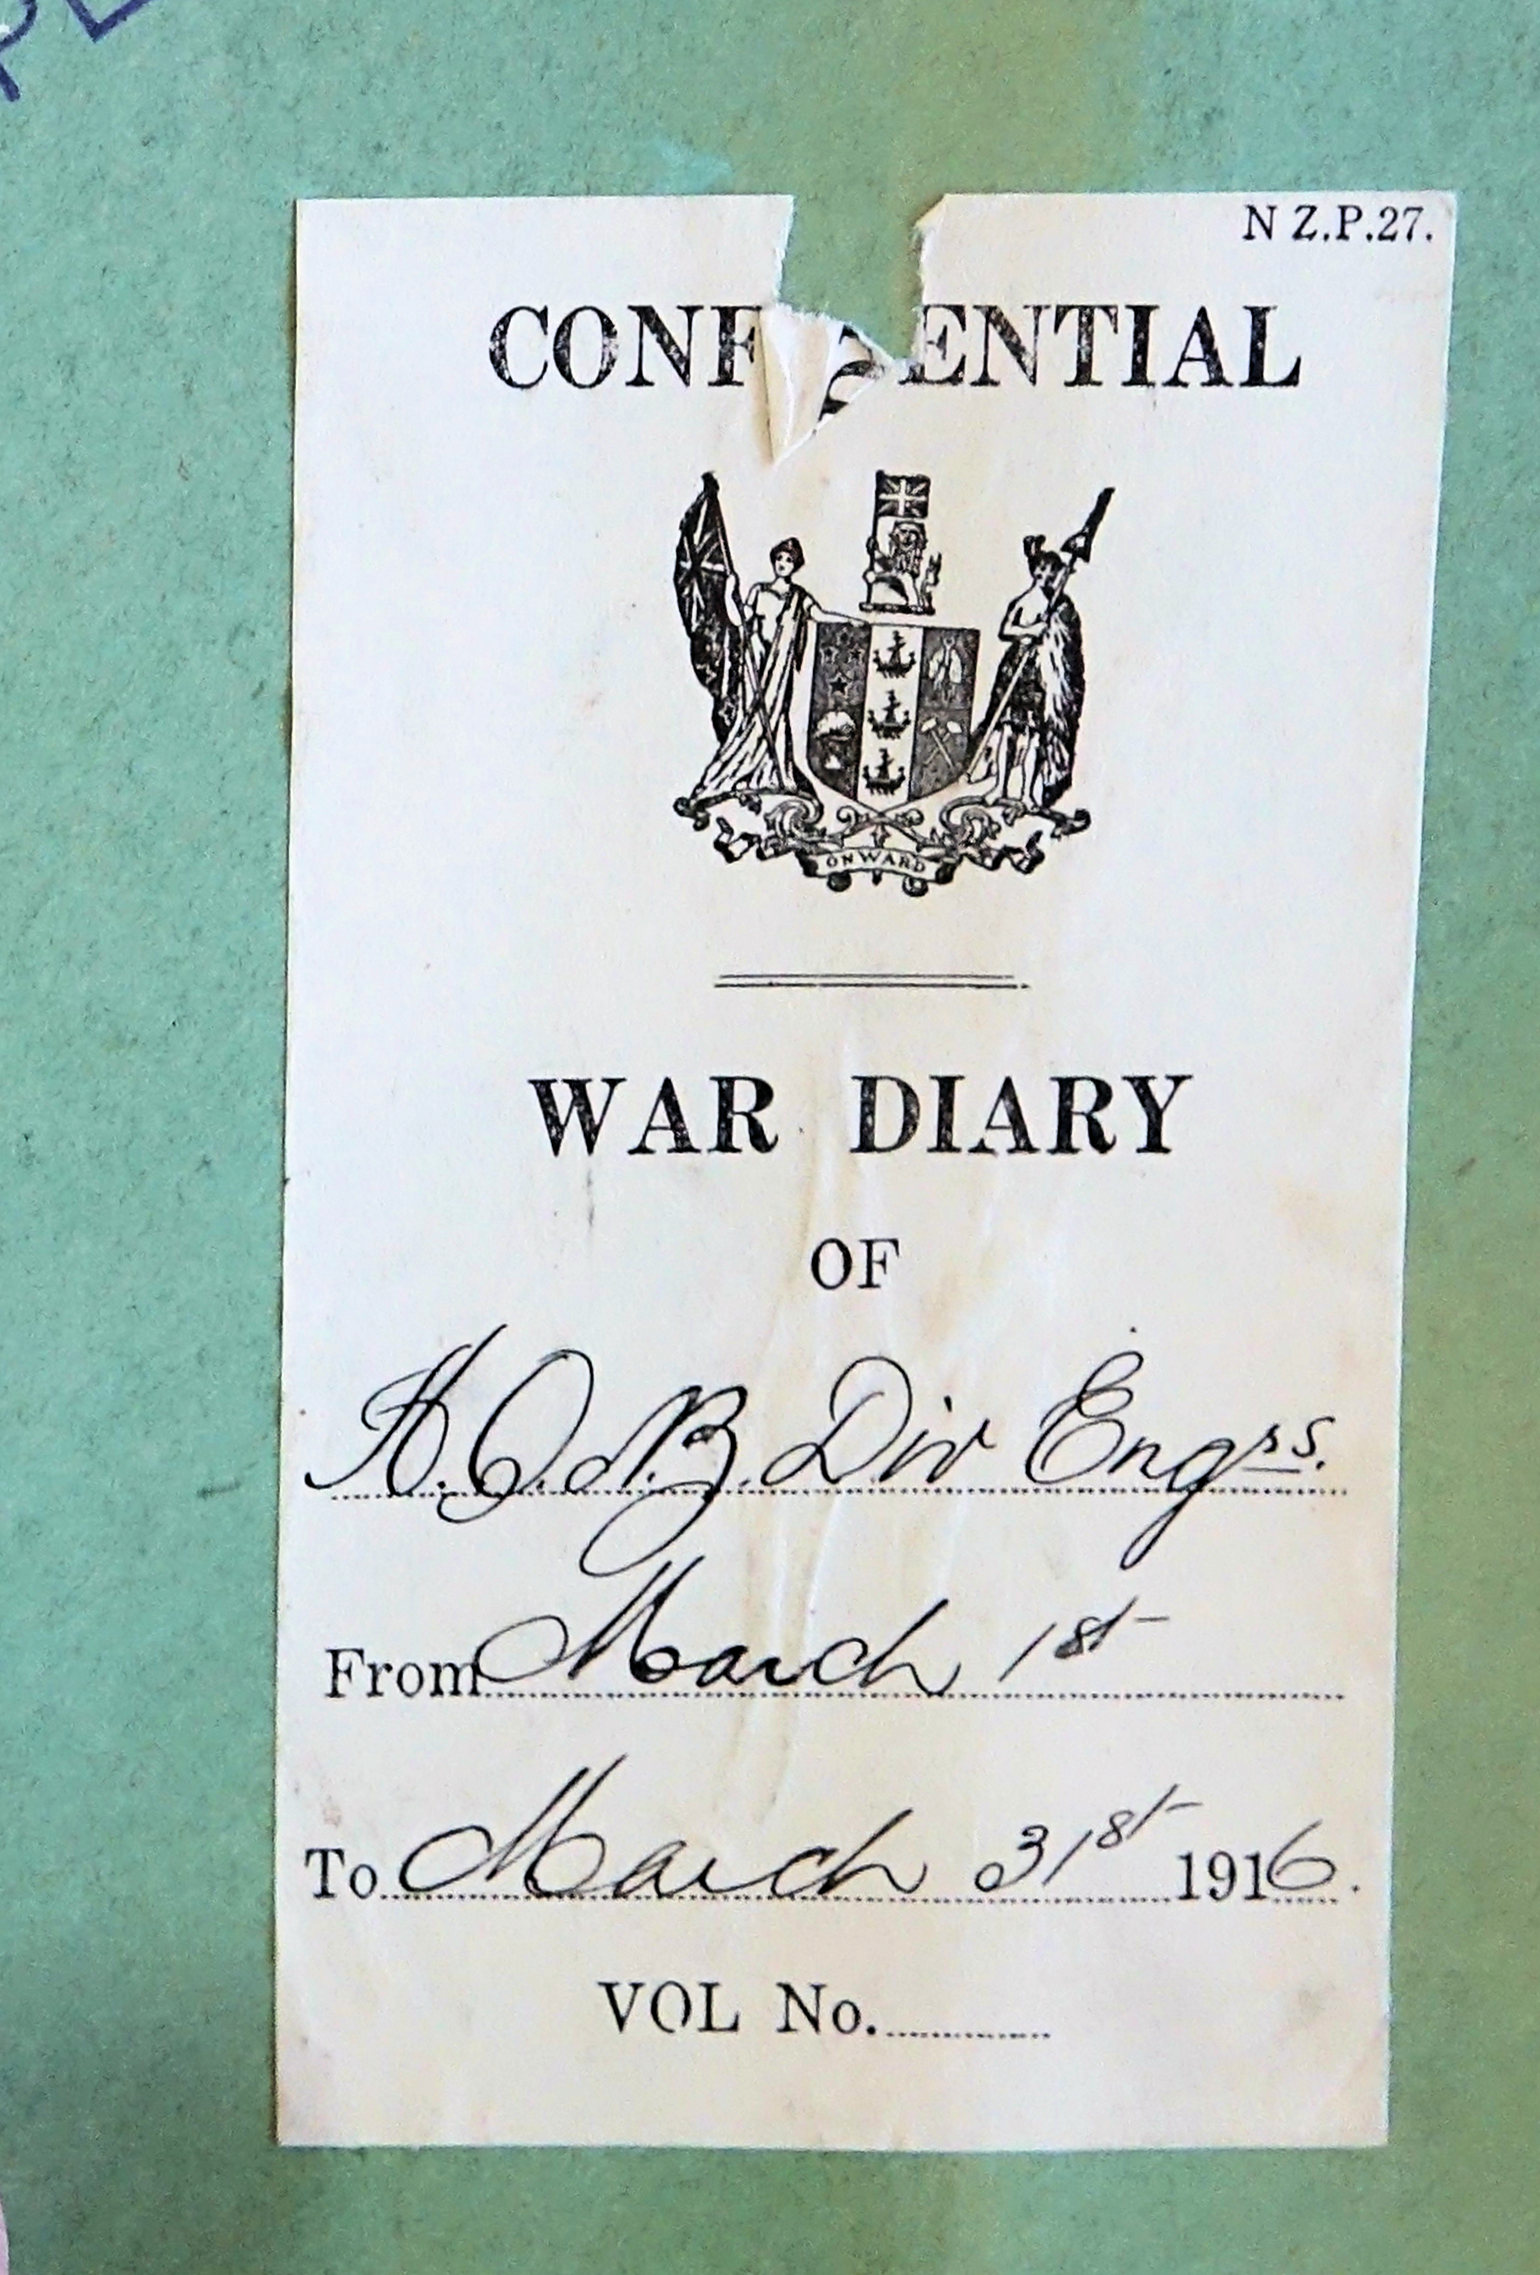 N Z.P.27.
CONFIDENTIAL
ONWARD
WAR DIARY
OF
H.Q. N.Z. Div Engrs.
From March 1st
To March 31st 1916.
VOL No.